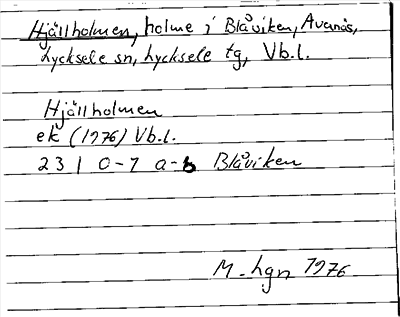 Hjällholmen, holme i Blåviken, Avanäs,
Lycksele sn, Lycksele tg, Vb.l.
Hjällholmen
ek (1976) Vb.l.
231 0-7 a-b Blåviken
M. Lgn 1976